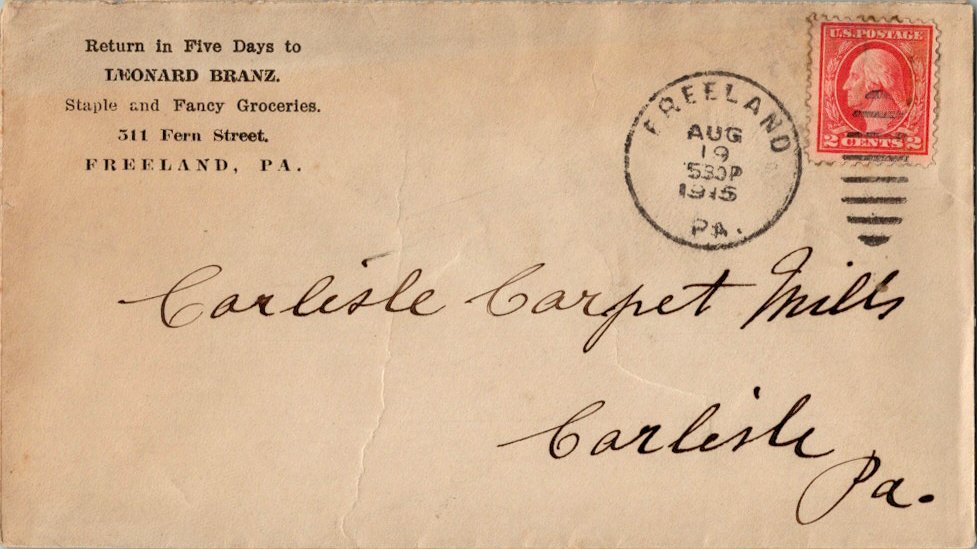 Return in Five Days to
LEONARD BRANZ.
Staple and Fancy Groceries.
511 Fern Street.
FREELAND, PA.
FREELAND
AUG
19
530P
1915
PA.
U.S. POSTAGE
2 CENTS 2
Carlisle Carpet Mills
Carlisle
Pa.